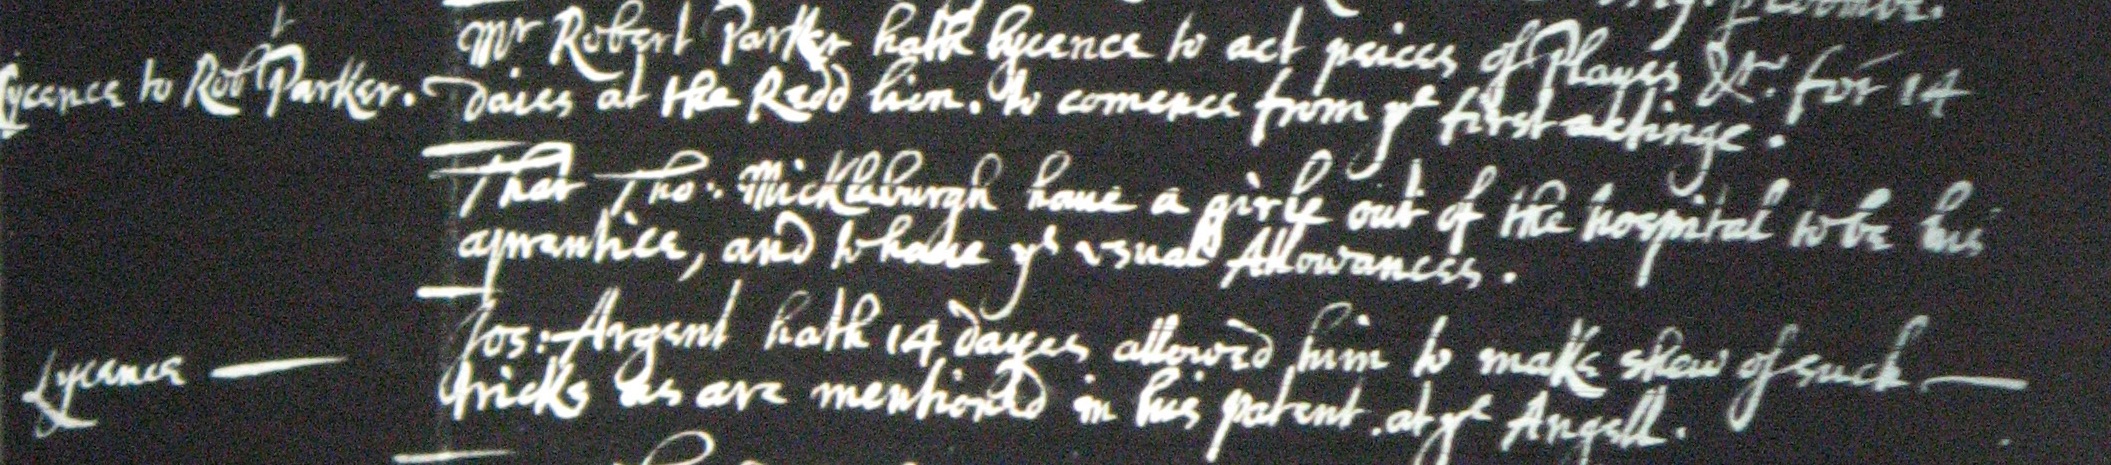 Lycence to Rob Parker.
Mr Robert Parker hath lycence to act peices of Playes &c. for 14
Daies at the Redd lion. to comence from ye first actinge.
That Tho: Mickleburgh haue a girle out of the hospital to be his
aprentice, and to haue ye vsual Allowances.
Lycence —
Jos: Argent hath 14 dayes allowed him to make shew of such —
tricks as are mentioned in his patent. at ye Angell.